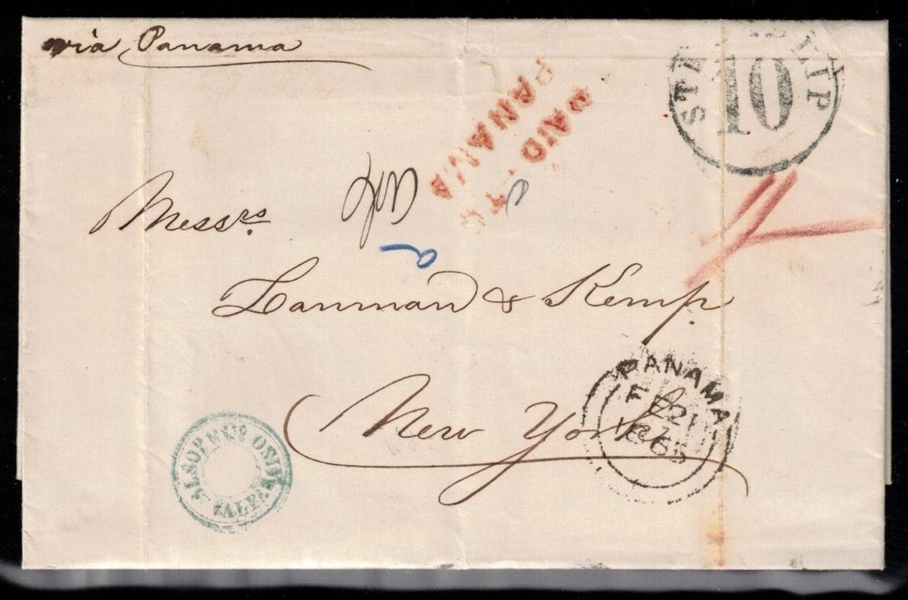 via Panama
STEAMSHIP
10
PAID TO
PANAMA
Messrs.
Lanman & Kemp.
New York
PANAMA
FE 21
1865
ALSOP & Co.
VALPARAISO